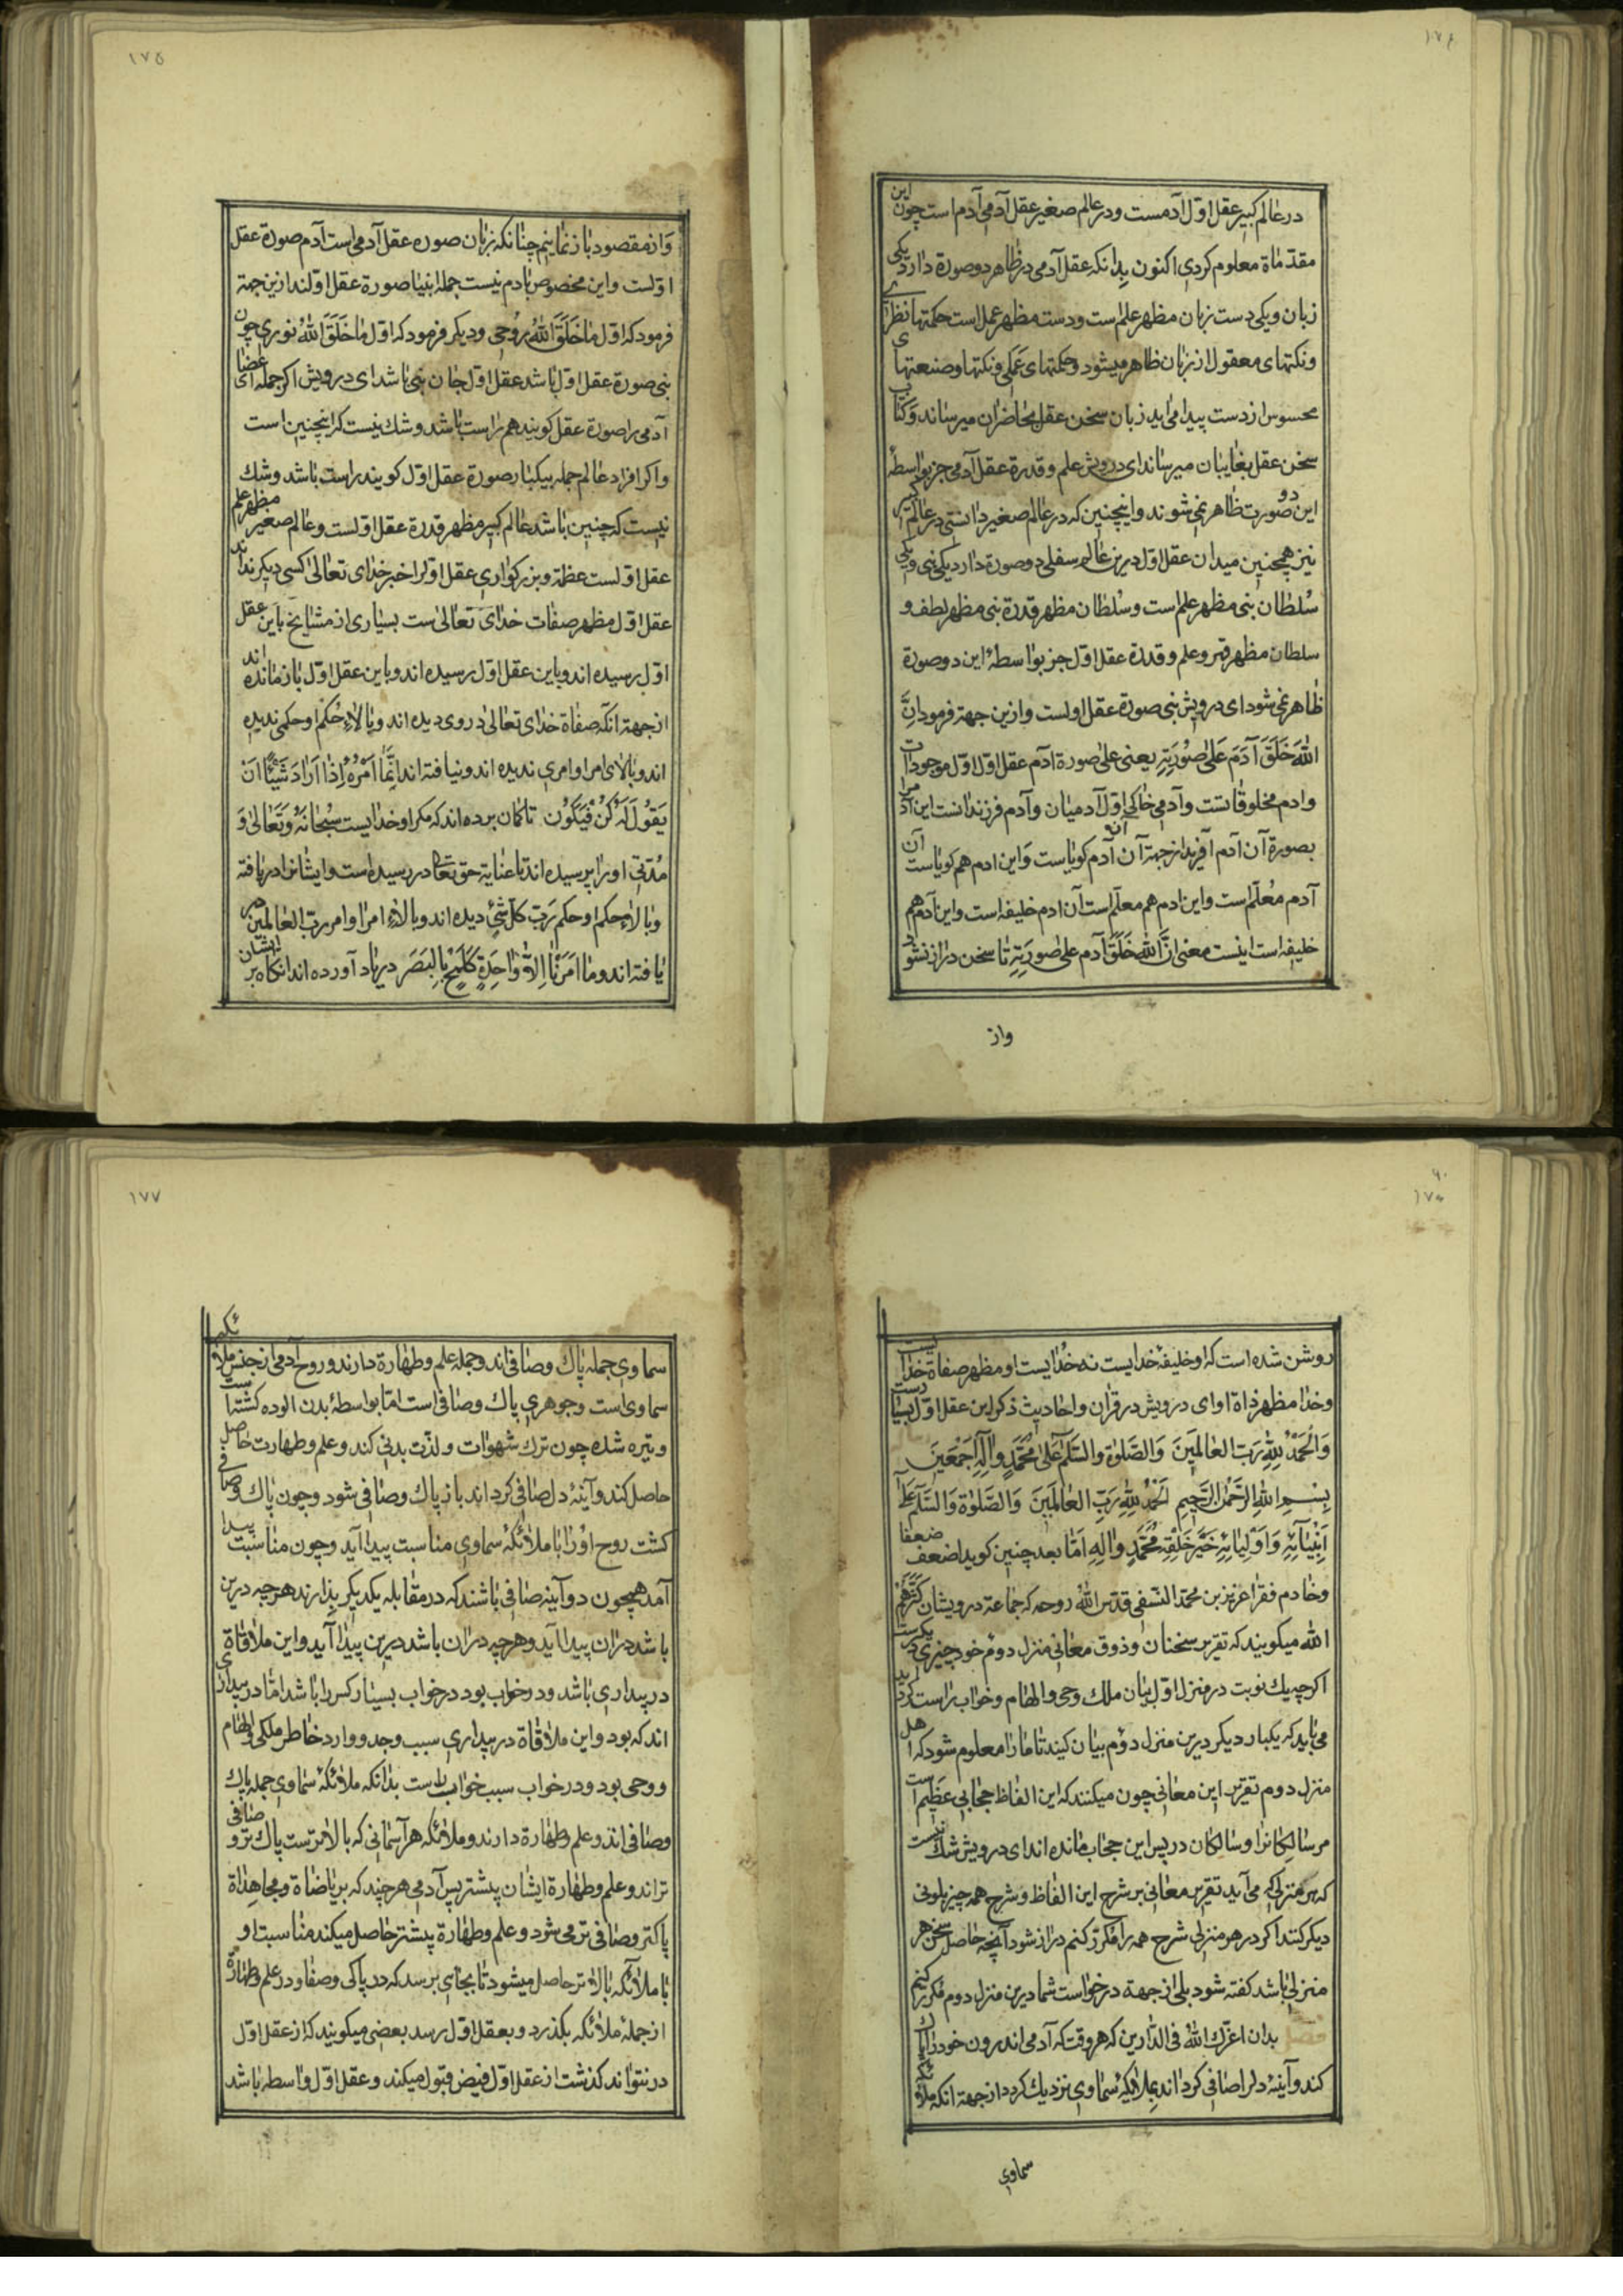 ١٧٤
در عالم کبیر عقل اوّل آدمست و در عالم صغیر عقل آدمی آدم است چون این
مقدّماة معلوم کردی اکنون بدانکه عقل آدمی در ظاهر دو صورة دارد یکی
زبان و یکی دست زبان مظهر علم است و دست مظهر عمل است حکمتها نظری
و نکتهای معقول از زبان ظاهر میشود و حکمتهای عَمَلی و نکتها و صنعتهای
محسوس از دست پیدا می اید زبان سخن عقل بحاضران میرساند و کتاب
سخن عقل بغایبان میرساند ای درویش علم و قدرة عقل آدمی جز بواسطهٔ
این دو صورت ظاهر نمی شوند و اینچنین که در عالم صغیر دانستی در عالم کبیر
نیز همچنین میدان عقل اوّل درین عالم سفلی دو صورة دارد یکی نبی و یکی
سُلطان نبی مظهر علم است و سُلطان مظهر قدرة نبی مظهر لطف و
سلطان مظهر قهر و علم و قدرة عقل اوّل جز بواسطهٔ این دو صورة
ظاهر نمی شود ای درویش نبی صورة عقل اولست و ازین جهة فرمود اِنَّ
اللهَ خَلَقَ آدَمَ عَلیٰ صُورَتِهِ یعنی علی صورة آدم عقل اوّل اوّل موجودات
و ادم مخلوقاتست و آدمی خاکی اوّل آدمیان و آدم فرزندانست این آدم را
بصورة آن آدم آفرید از جهة آن آدم کویاست و این ادم هم کویاست آن
آدم مُعلّم است و این ادم هم معلّم است آن ادم خلیفه است و این آدم هم
خلیفه است اینست معنی انَّ اللهَ خَلَقَ آدم علی صورَتِهِ تا سخن دراز نشود
واز
١٧٥
وَاز مقصود باز نمانیم چنانکه زبان صوره عقل آدمی است آدم صورة عقل
اوّلست و این مخصوص بادم نیست جمله انبیا صورة عقل اوّلند ازین جهة
فرمود که اوّل مٰا خَلَقَ اللهُ رُوحی و دیکر فرمود که اوّل مٰا خَلَقَ اللهُ نوری چون
نبی صورة عقل اوّل باشد عقل اوّل جان نبی باشد ای درویش اکر جمله اعضای
آدمی را صورة عقل کویند هم راست باشد و شك نیست که اینچنین است
و اکر افراد عالم جمله بیکبار صورة عقل اوّل کویند راست باشد و شك
نیست که چنین باشد عالم کبیر مظهر قدرة عقل اوّلست و عالم صغیر مظهر علم
عقل اوّلست عظمة و بزرکواری عقل اوّل را خبر خدای تعالیٰ کسی دیکر نداند
عقل اوّل مظهر صفات خدای تعالی است بسیاری از مشایخ باین عقل
اوّل رسیده اند و باین عقل اوّل رسیده اند و باین عقل اوّل بازمانده اند
از جهة انکه صفاة خدای تعالیٰ در وی دیده اند و بالاء حُکم او حکمی ندیده
اند و بالای امر او امری ندیده اند و نیافته اند اِنَّمٰا اَمْرُهُ اِذٰا اَرٰادَ شَیْئًا اَنْ
یَقُولَ لَهُ کُنْ فَیَکُون تا کمان برده اند که مکر او خدایست سُبحٰانَهُ وَ تَعٰالیٰ وَ
مُدّتی اورا پرسیده اند تا عنایة حق تعالی در رسیده است و ایشانرا دریافته
و بالاء حکم او حکم رَبّ کلّ شَیْ دیده اند و بالاء امر او امر ربّ العٰالمین هم
یافته اند و ما اَمْرُنٰا اِلاّ وٰاحِدَةٌ کَلَمْحٍ بِالبَصَر دریاد آورده اند انکاه بر ایشان
٩٠
١٧٦
روشن شده است که او خلیفهٔ خدایست نه خُدایست او مظهر صفاة خدایست
و خدا مظهر ذاة او ای درویش در قرآن و احادیث ذکر این عقل اوّل بسیارست
وَالْحَمْدُ لِلّٰهِ رَبّ العٰالَمینَ وَالصَّلوٰة وَالسَّلٰم عَلیٰ مُحَمَّدٍ وٰالِهِ اَجْمَعینَ
بِسْــمِ اللهِ الرَّحْمٰنِ الرَّحیمِ اَلْحَمْدُ لِلّٰهِ رَبِّ العٰالَمینَ وَالصَّلوٰة وَالسَّلٰم عَلیٰ
اَنْبِیٰآئِهِ وَاَوْلِیٰآئِهِ خَیْرِ خَلْقِهِ مُحَمَّدٍ وٰالِهِ اَمّا بعد چنین کوید اضعف ضعفا
و خادم فقرا عزیز بن محمّد النّسفی قدّس اللهُ روحه که جماعة درویشان کَثَّرَهُمُ
الله میکویند که تقریر سخنان و ذوق معانی منزل دوم خود چیزی دیکرست
اکر چه یك نوبت در منزل اوّل بیان ملك وحی و الهام و خواب راست کردید
می باید که یکبار دیکر درین منزل دوم بیان کیند تا ما را معلوم شود که اهل
منزل دوم تقریر این معانی چون میکنند که این الفاظ حجابی عَظیم است
مر سالکانرا و سالکان در پس این حجاب مانده اند ای درویش شك نیست
که هر منزلی که می آید تقریر معانی بر شرح این الفاظ و شرح همه چیز بلونی
دیکر کنند اکر در هر منزلی شرح همه را مُکرّر کنم دراز شود آنچه حاصل سخن هر
منزلی باشد کفته شود بلی از جهة درخواست شما درین منزل دوم مُکرّر کنیم
بدان اعزّك اللهُ فی الدّارین که هر وقت که آدمی اندرون خود را پاك
کند و آینهٔ دلرا صافی کرداند بملائکهٔ سماوی نزدیك کردد از جهة انکه ملائکه
سماوی
١٧٧
سماوی جمله پاك و صافی اند و جمله علم و طهارة دارند و روح آدمی از جنس ملائکه
سماوی است و جوهری پاك و صافی است امّا بواسطهٔ بدن الوده کشته است
و تیره شده چون ترك شهوات و لذّت بدنی کند و علم و طهارت حاصل
حاصل کند و آینهٔ دل صافی کرداند باز پاك و صافی شود و چون پاك و صافی
کشت روح اورا با ملائکهٔ سماوی مناسبت پیدا آید و چون مناسبت پیدا
آمد همچون دو آینهٔ صافی باشند که در مقابله یکدیکر بدارند هرچه درین
باشد دران پیدا آید و هرچه دران باشد درین پیدا آید و این ملاقاة
در بیداری باشد و در خواب بود در خواب بسیار کس را باشد امّا در بیداری
اندك بود و این ملاقاة در بیداری سبب وجد و وارد خاطر ملکی و الهام
و وحی بود و در خواب سبب خواب راست بدانکه ملائکهٔ سماوی جمله پاك
و صافی اند و علم و طهارة دارند و ملائکه هر آسمانی که بالاترست پاك تر و صافی
تر اند و علم و طهارة ایشان بیشتر پس آدمی هر چند که بریاضاة و مجاهداة
پاکتر و صافی تر می شود و علم و طهارة بیشتر حاصل میکند مناسبت او
با ملائکه بالاتر حاصل میشود تا بجائی برسد که در پاکی و صفا و در علم و طهارة
از جملهٔ ملائکه بکذرد و بعقل اوّل رسد بعضی میکویند که از عقل اوّل
در نتواند کذشت از عقل اوّل فیض قبول میکند و عقل اوّل واسطه باشد